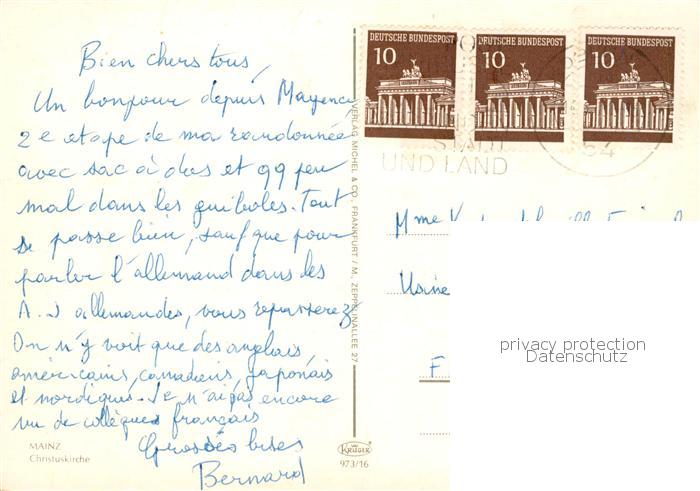 Bien chers tous,
Un bonjour depuis Mayence
2e etape de ma randonnée
avec sac à dos et qq peu
mal dans les guiboles. Tout
se passe bien, sauf que pour
parler l'allemand dans les
A.J allemandes, vous repasserez
On n'y voit que des anglais,
américains, canadiens, japonais
et nordiques. Je n'ai pas encore
vu de collègues français
Grosses bises
Bernard
MAINZ
Christuskirche
VERLAG MICHEL & CO., FRANKFURT / M., ZEPPELINALLEE 27
KRÜGER
973/16
DEUTSCHE BUNDESPOST
10
DEUTSCHE BUNDESPOST
10
DEUTSCHE BUNDESPOST
10
STADT
UND LAND
54
Mme
Usine
F
privacy protection
Datenschutz